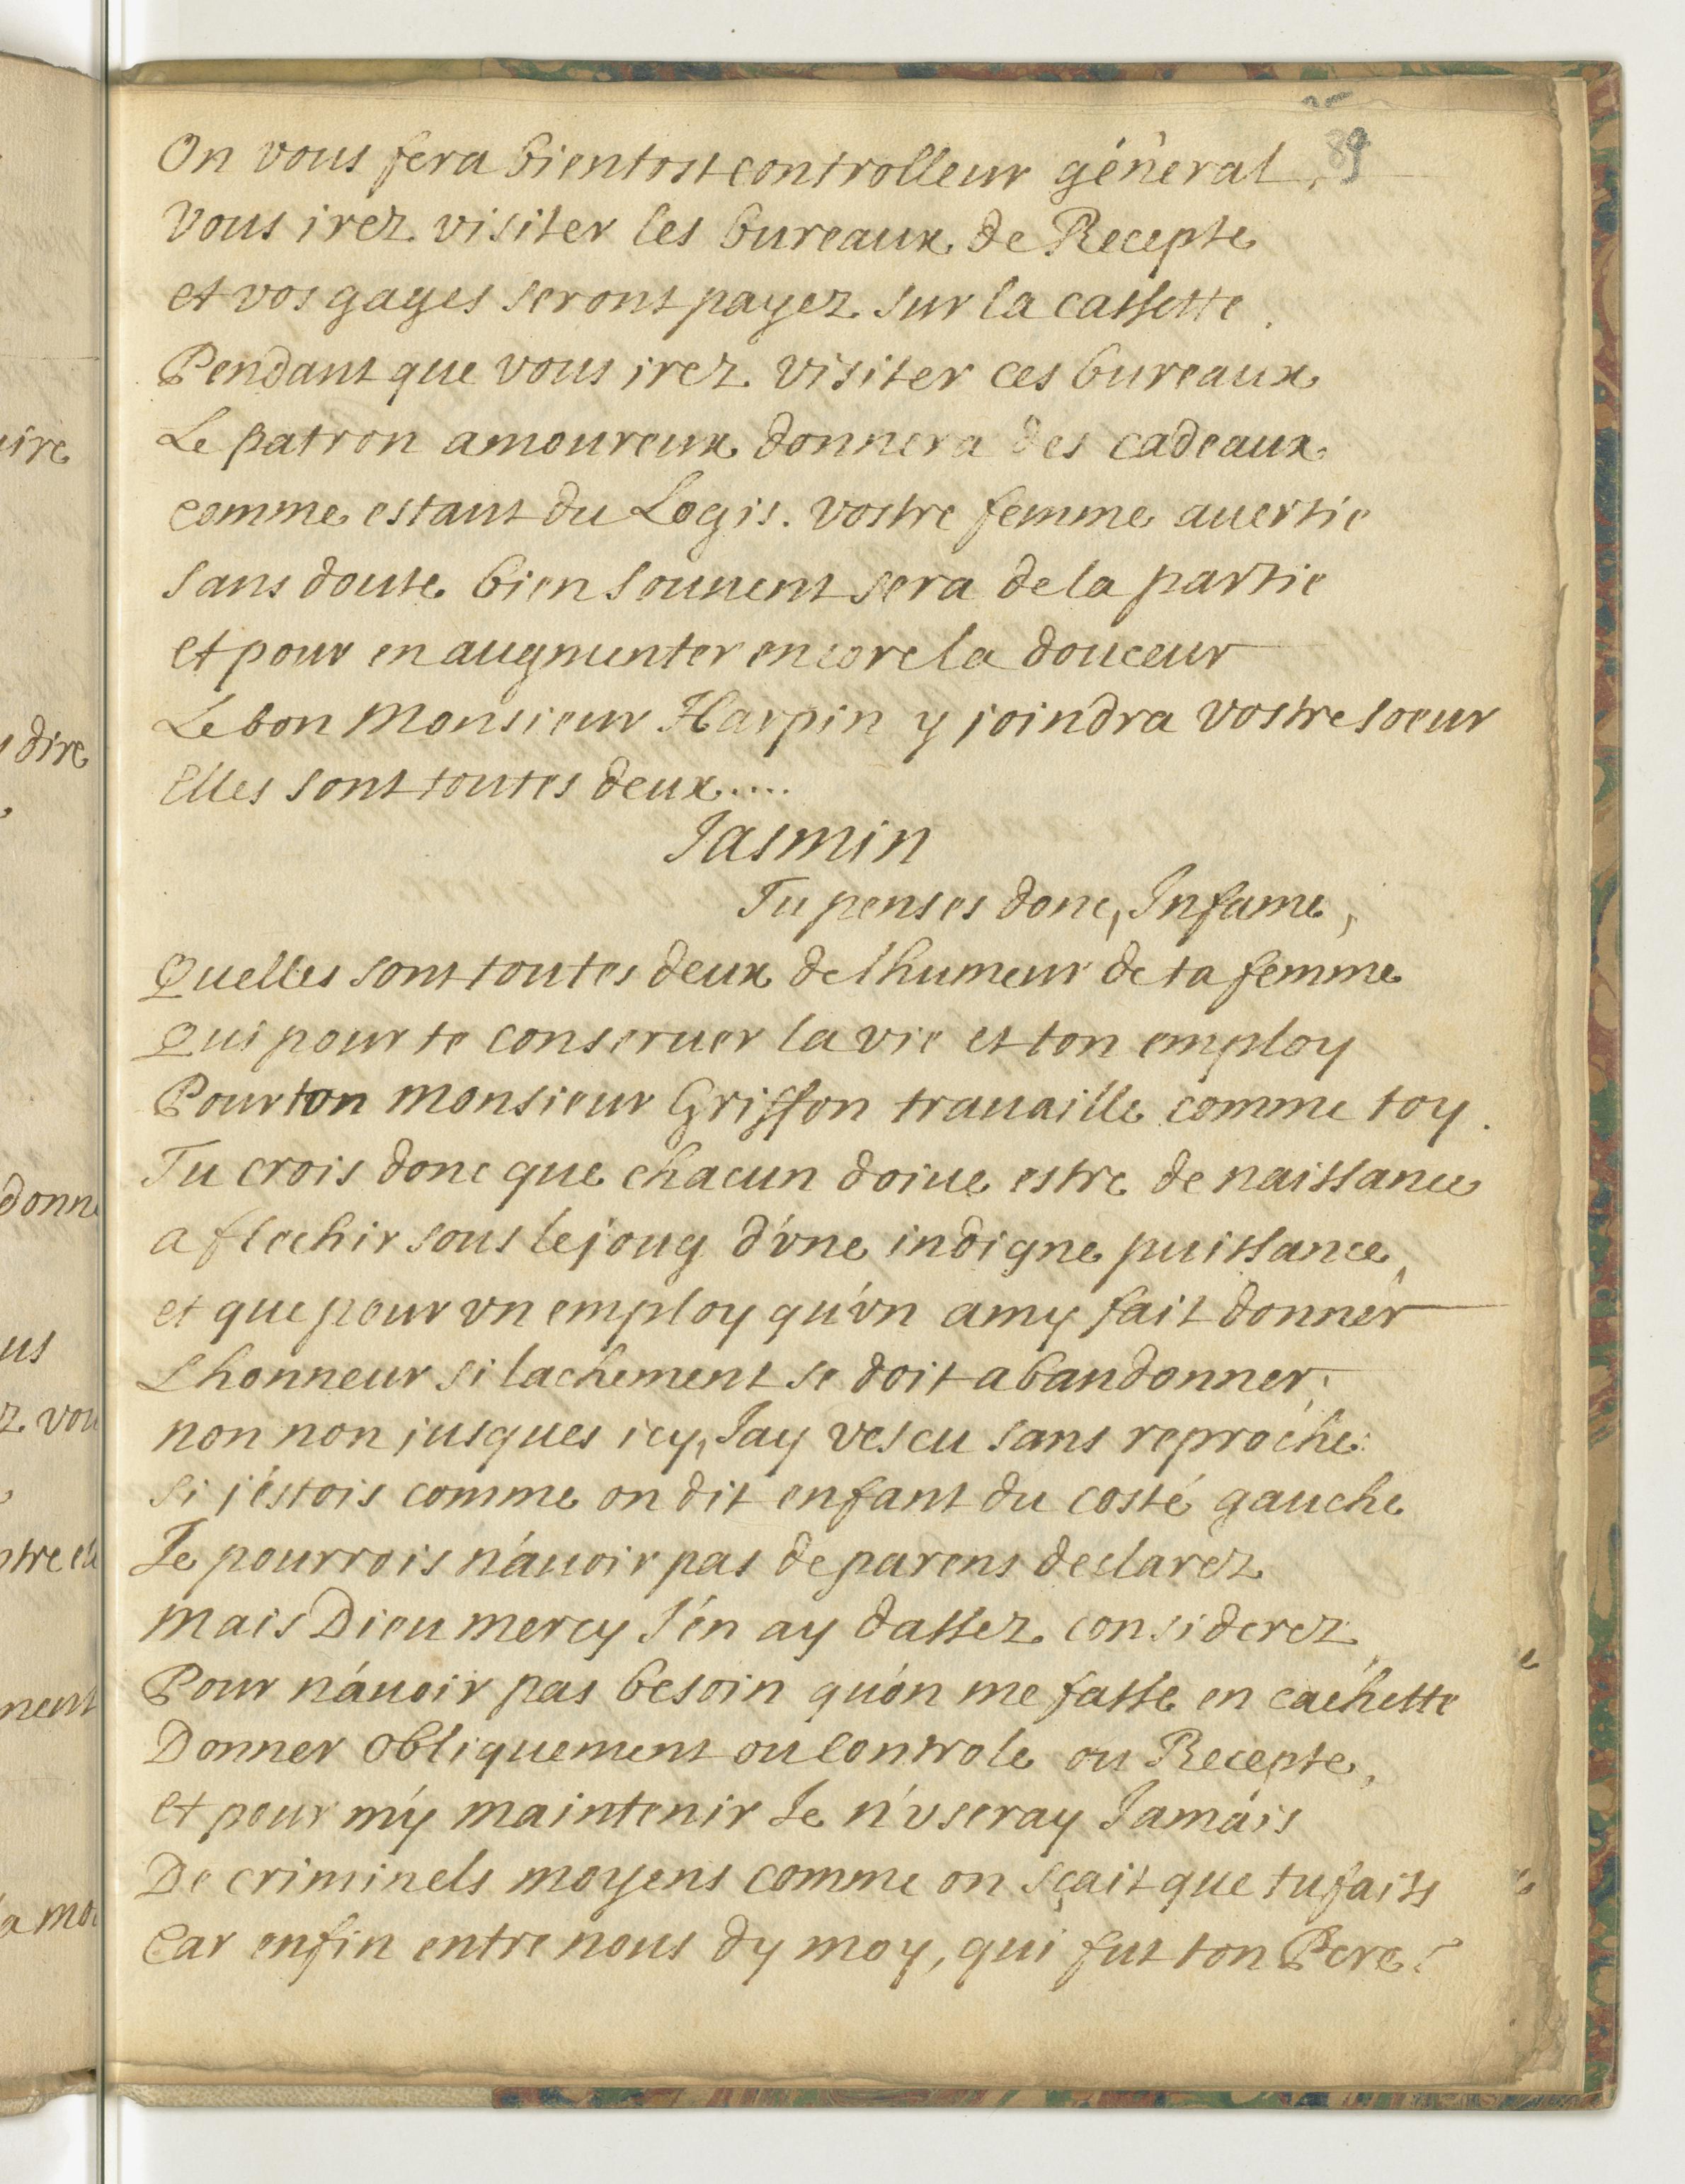 89
On vous fera bientost controlleur géneral,
Vous irez visiter les bureaux de Recepte
et vos gages seront payez sur la cassette.
Pendant que vous irez visiter ces bureaux
Le patron amoureux donnera des cadeaux
comme estant du Logis. vostre femme auertie
sans doute bien souuent sera de la partie
et pour en augmenter encore la douceur
Le bon Monsieur Harpin y joindra vostre soeur
Elles sont toutes deux.....
Jasmin
Tu penses donc, Infame,
Quelles sont toutes deux de lhumeur de ta femme
Qui pour te conseruer la vie et ton employ
Pour ton Monsieur Griffon trauaille comme toy.
Tu crois donc que chacun doiue estre de naissance
a flechir sous le joug d'vne indigne puissance,
et que pour vn employ qu'vn amy fait donner
Lhonneur si lachement se doit abandonner;
non non jusques icy, Jay vescu sans reproche:
si j'estois comme on dit enfant du costé gauche
Je pourrois n'auoir pas de parens declarez
Mais Dieu mercy J'en ay dassez considerez,
Pour n'auoir pas besoin qu'on me fasse en cachette
Donner obliquement ou Controle ou Recepte,
et pour m'y maintenir Je n'vseray Jamais
De criminels moyens comme on sçait que tu faits
Car enfin entre nous dy moy, qui fut ton Pere?
ire
dire
donne
us
z vou
nent
a mo